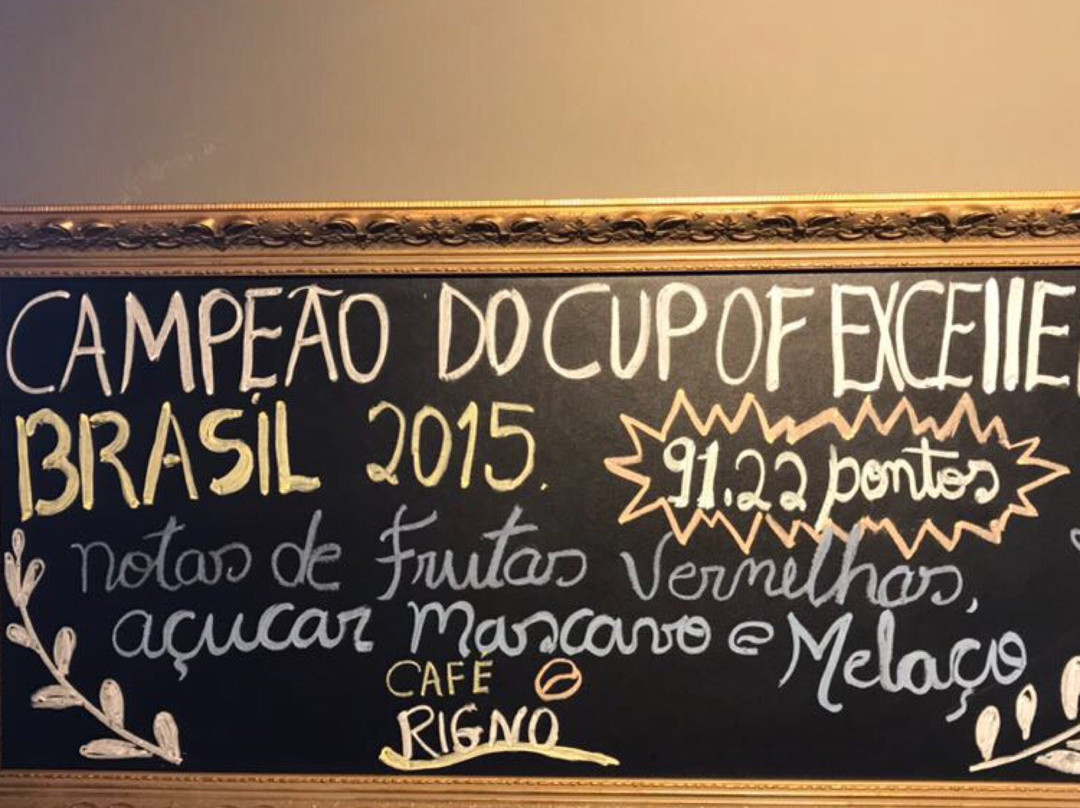 CAMPEÃO DO CUP OF EXCELLE
BRASIL 2015.
91.22 pontos
notas de Frutas Vermelhas,
açucar Mascavo e Melaço
CAFÉ
RIGNO